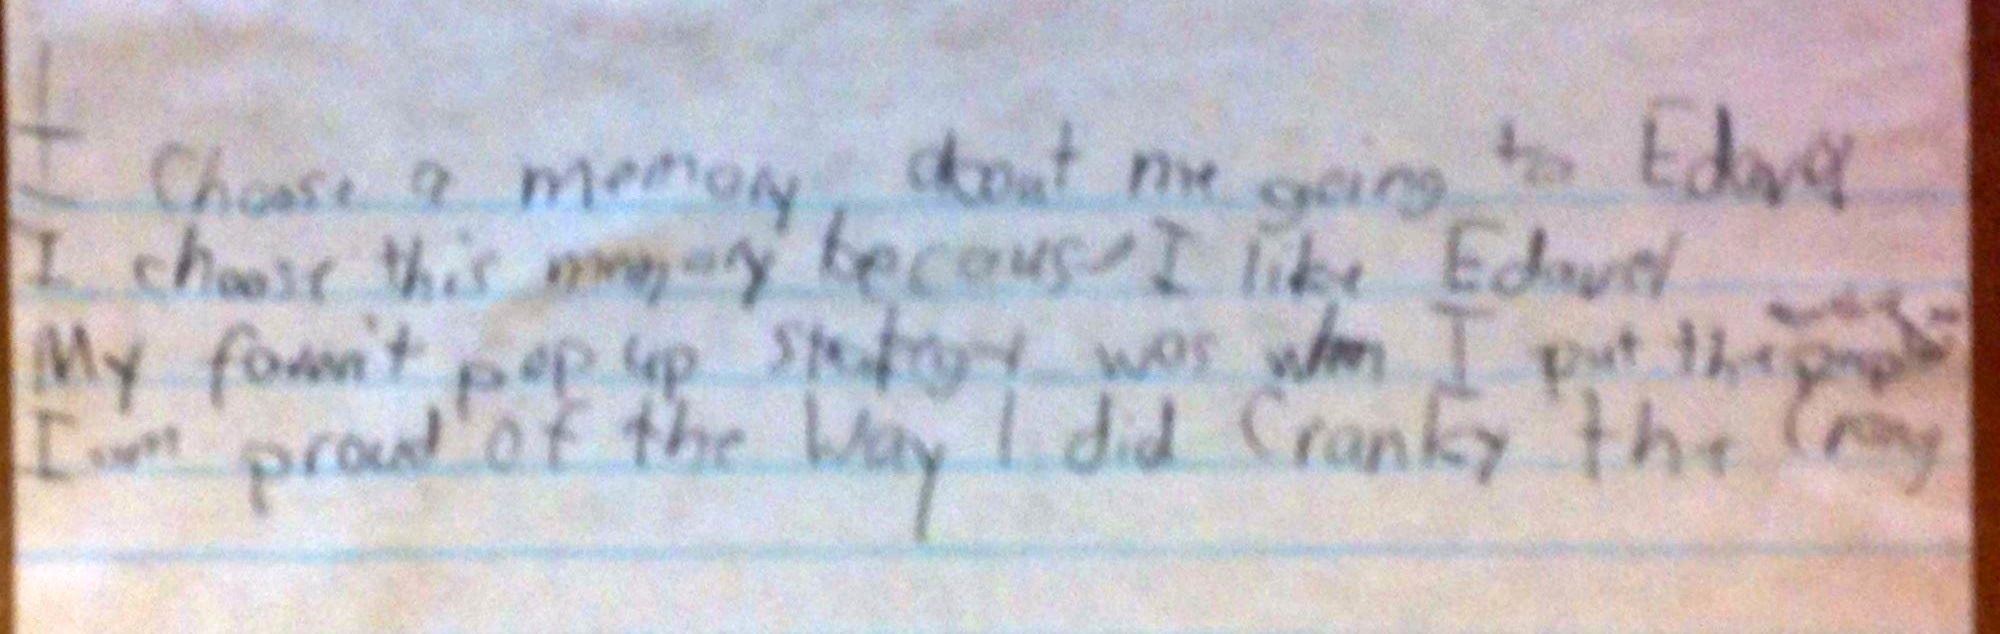 I Choose a memory about me going to Edavel
I choose this memory becaus I like Edavel
My favorit pop up was when I put the
I am proud of the Way I did Cranky the Crany